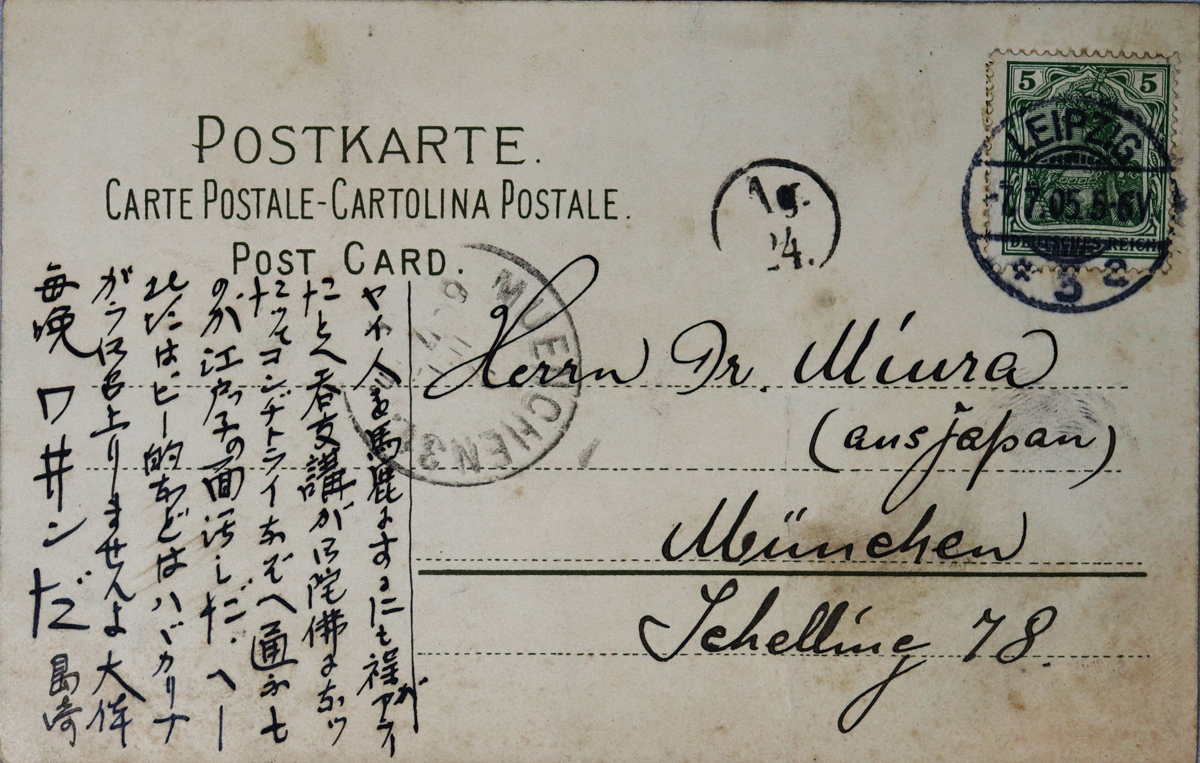 POSTKARTE.
CARTE POSTALE-CARTOLINA POSTALE.
POST CARD.
5 5
DEUTSCHES REICH
LEIPZIG
7.7.05.5-6V
* 3 2
Ag.
24.
MUENCHEN
Herrn Dr. Miura
(aus Japan)
München
Schelling 78.
人を馬鹿にするにも程がアラ
講が陀佛になツ
たツてコンヂトライなぞへ通ふも
のか江戸っ子の面汚しだ、へー
はビー的などはハバカリナ
がら口も上りませんよ大体
毎晩ワ井ンだ
島崎